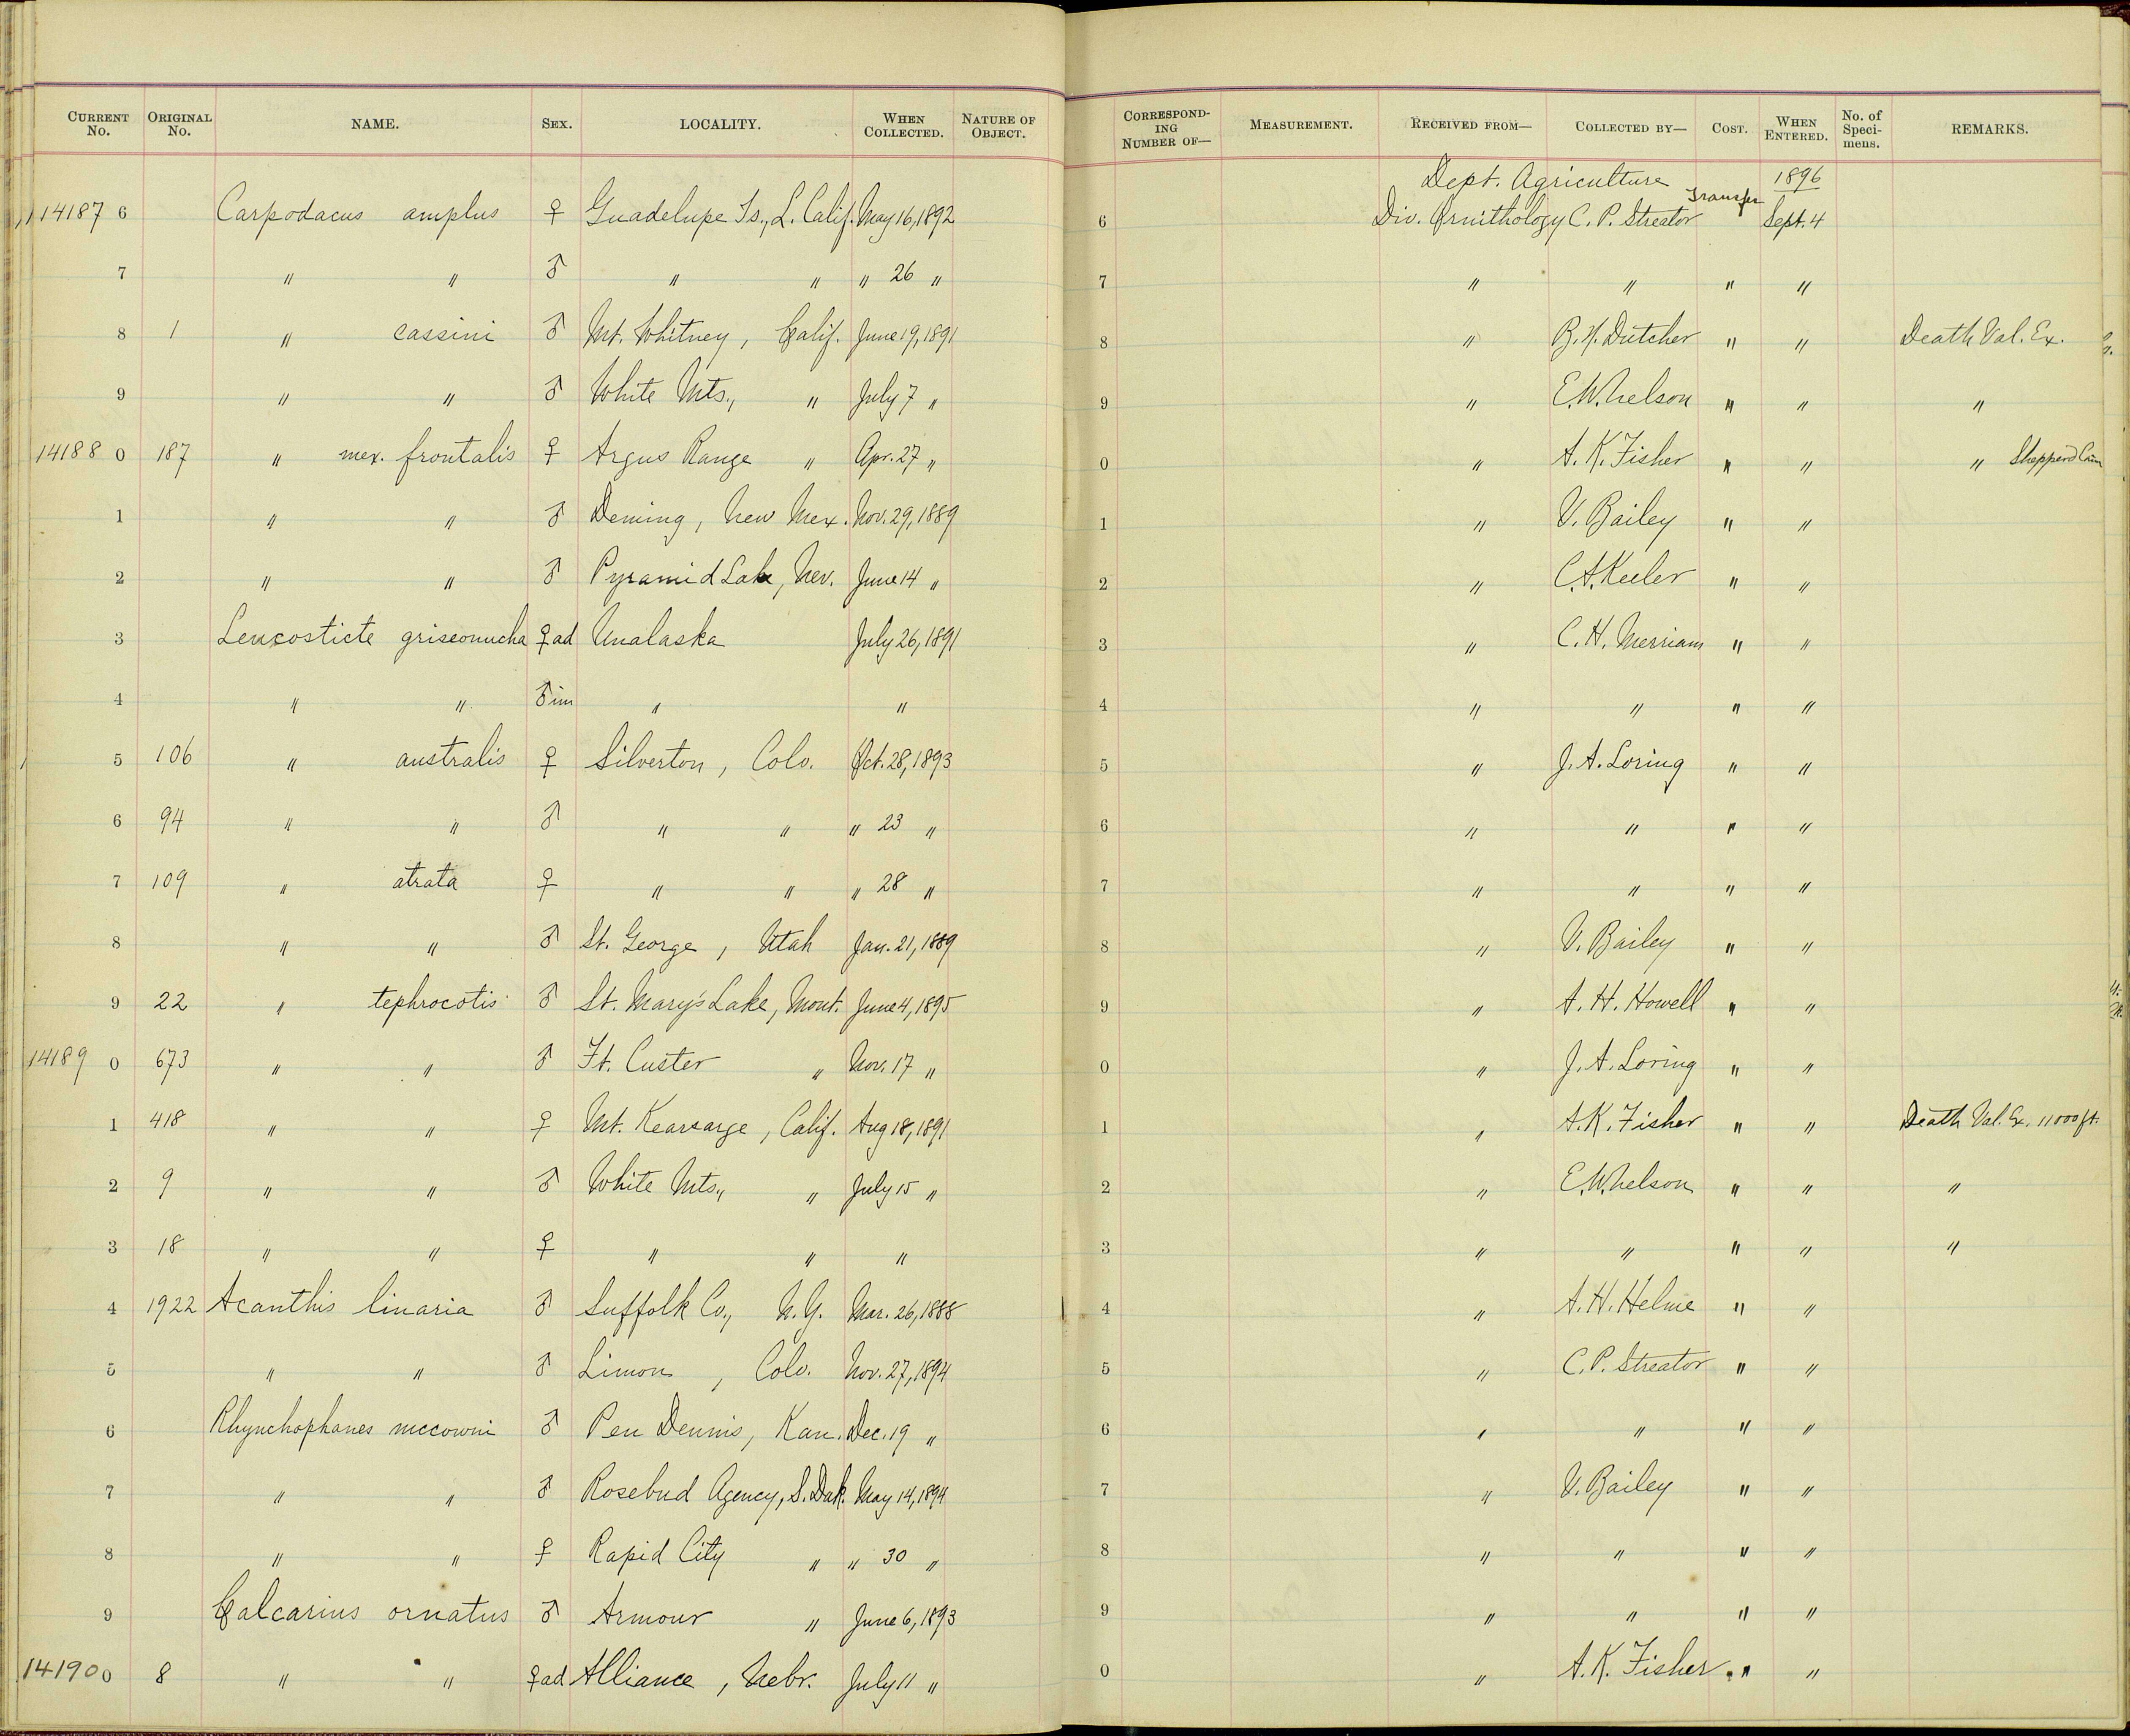 CURRENT No. ORIGINAL No. NAME. SEX. LOCALITY. WHEN COLLECTED. NATURE OF OBJECT. CORRESPONDING NUMBER OF— MEASUREMENT. RECEIVED FROM— COLLECTED BY— COST. WHEN ENTERED. No. of Specimens. REMARKS.
Dept. Agriculture 1896
14187 6 Carpodacus amplus ♀ Guadelupe Is., L. Calif. May 16, 1892 6 Div. Ornithology C. P. Streator Transfer Sept. 4
7 " " ♂ " " " 26 " 7 " " " "
8 1 " cassini ♂ Mt. Whitney, Calif. June 19, 1891 8 " B. H. Dutcher " " Death Val. Ex.
9 " " ♂ White Mts., " July 7 " 9 " E. W. Nelson " " "
14188 0 187 " mex. frontalis ♀ Argus Range " Apr. 27 " 0 " A. K. Fisher " " " Shepperd Cañn
1 " " ♂ Deming, New Mex. Nov. 29, 1889 1 " V. Bailey " "
2 " " ♂ Pyramid Lake, Nev. June 14 " 2 " C. A. Keeler " "
3 Leucosticte griseonucha ♀ ad Unalaska July 26, 1891 3 " C. H. Merriam " "
4 " " ♂ im " " 4 " " " "
5 106 " australis ♀ Silverton, Colo. Oct. 28, 1893 5 " J. A. Loring " "
6 94 " " ♂ " " " 23 " 6 " " " "
7 109 " atrata ♀ " " " 28 " 7 " " " "
8 " " ♂ St. George, Utah Jan. 21, 1889 8 " V. Bailey " "
9 22 " tephrocotis ♂ St. Mary's Lake, Mont. June 4, 1895 9 " A. H. Howell " "
14189 0 673 " " ♂ Ft. Custer " Nov. 17 " 0 " J. A. Loring " "
1 418 " " ♀ Mt. Kearsarge, Calif. Aug 18, 1891 1 " A. K. Fisher " " Death Val. Ex. 11000 ft.
2 9 " " ♂ White Mts., " July 15 " 2 " E. W. Nelson " " "
3 18 " " ♀ " " " 3 " " " " "
4 1922 Acanthis linaria ♂ Suffolk Co., N.Y. Mar. 26, 1888 4 " A. H. Helme " "
5 " " ♂ Limon, Colo. Nov. 27, 1894 5 " C. P. Streator " "
6 Rhynchophanes mccowni ♂ Pen Dennis, Kan. Dec. 19 " 6 " " " "
7 " " ♂ Rosebud Agency, S. Dak. May 14, 1894 7 " V. Bailey " "
8 " " ♀ Rapid City " " 30 " 8 " " " "
9 Calcarius ornatus ♂ Armour " June 6, 1893 9 " " " "
14190 0 8 " " ♀ ad Alliance, Nebr. July 11 " 0 " A. K. Fisher " "